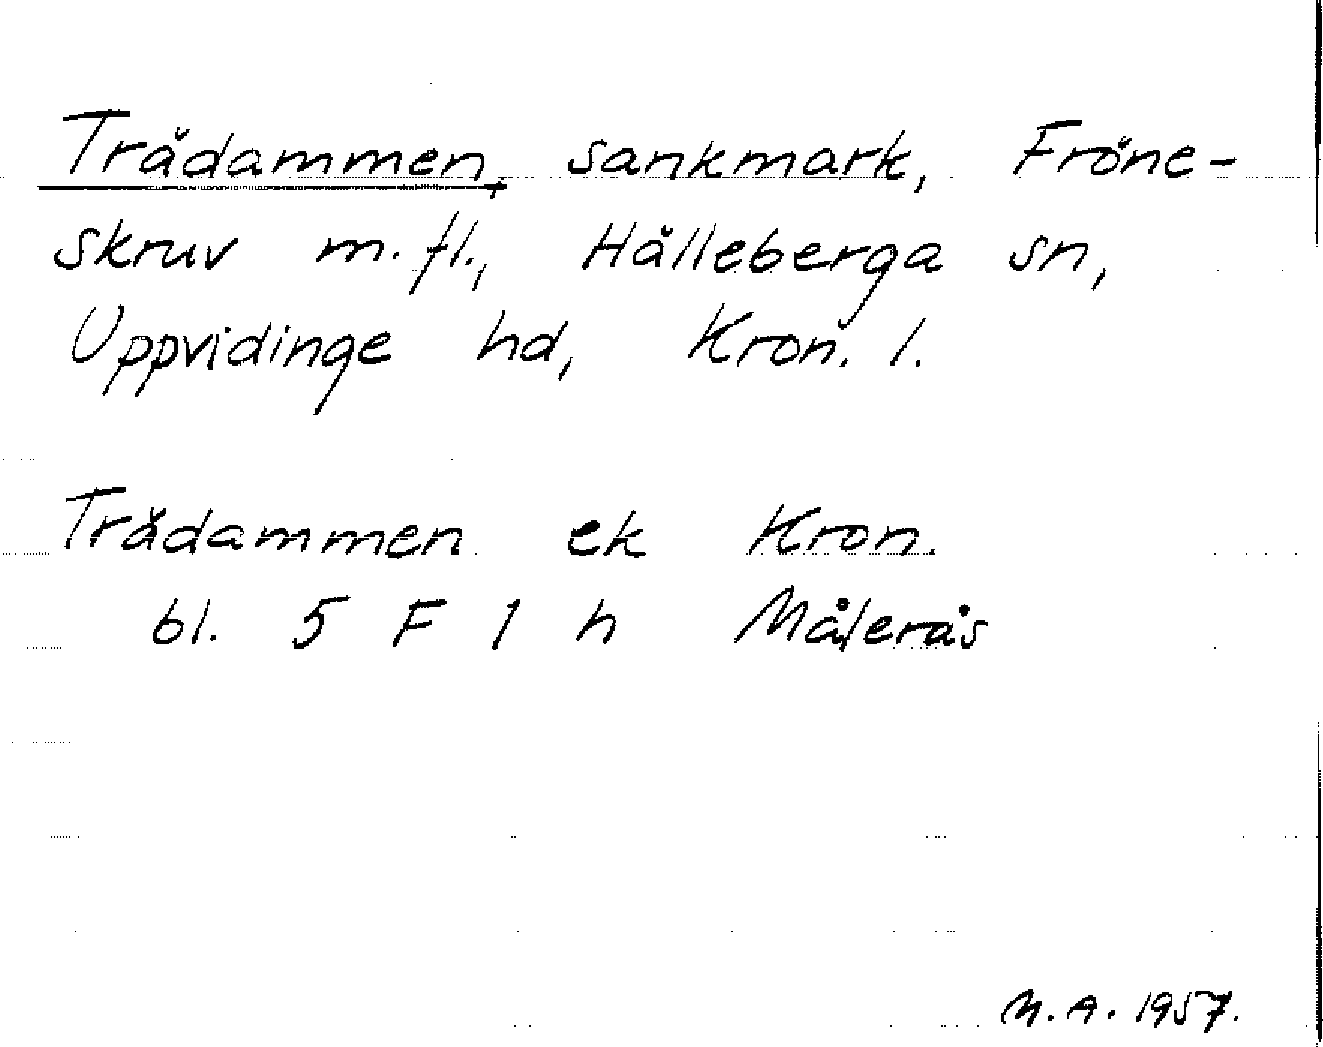 Trädammen, sankmark, Fröne-
skruv m.fl., Hälleberga sn,
Uppvidinge hd, Kron. l.
Trädammen ek Kron.
bl. 5 F 1 h Målerås
M.A. 1957.